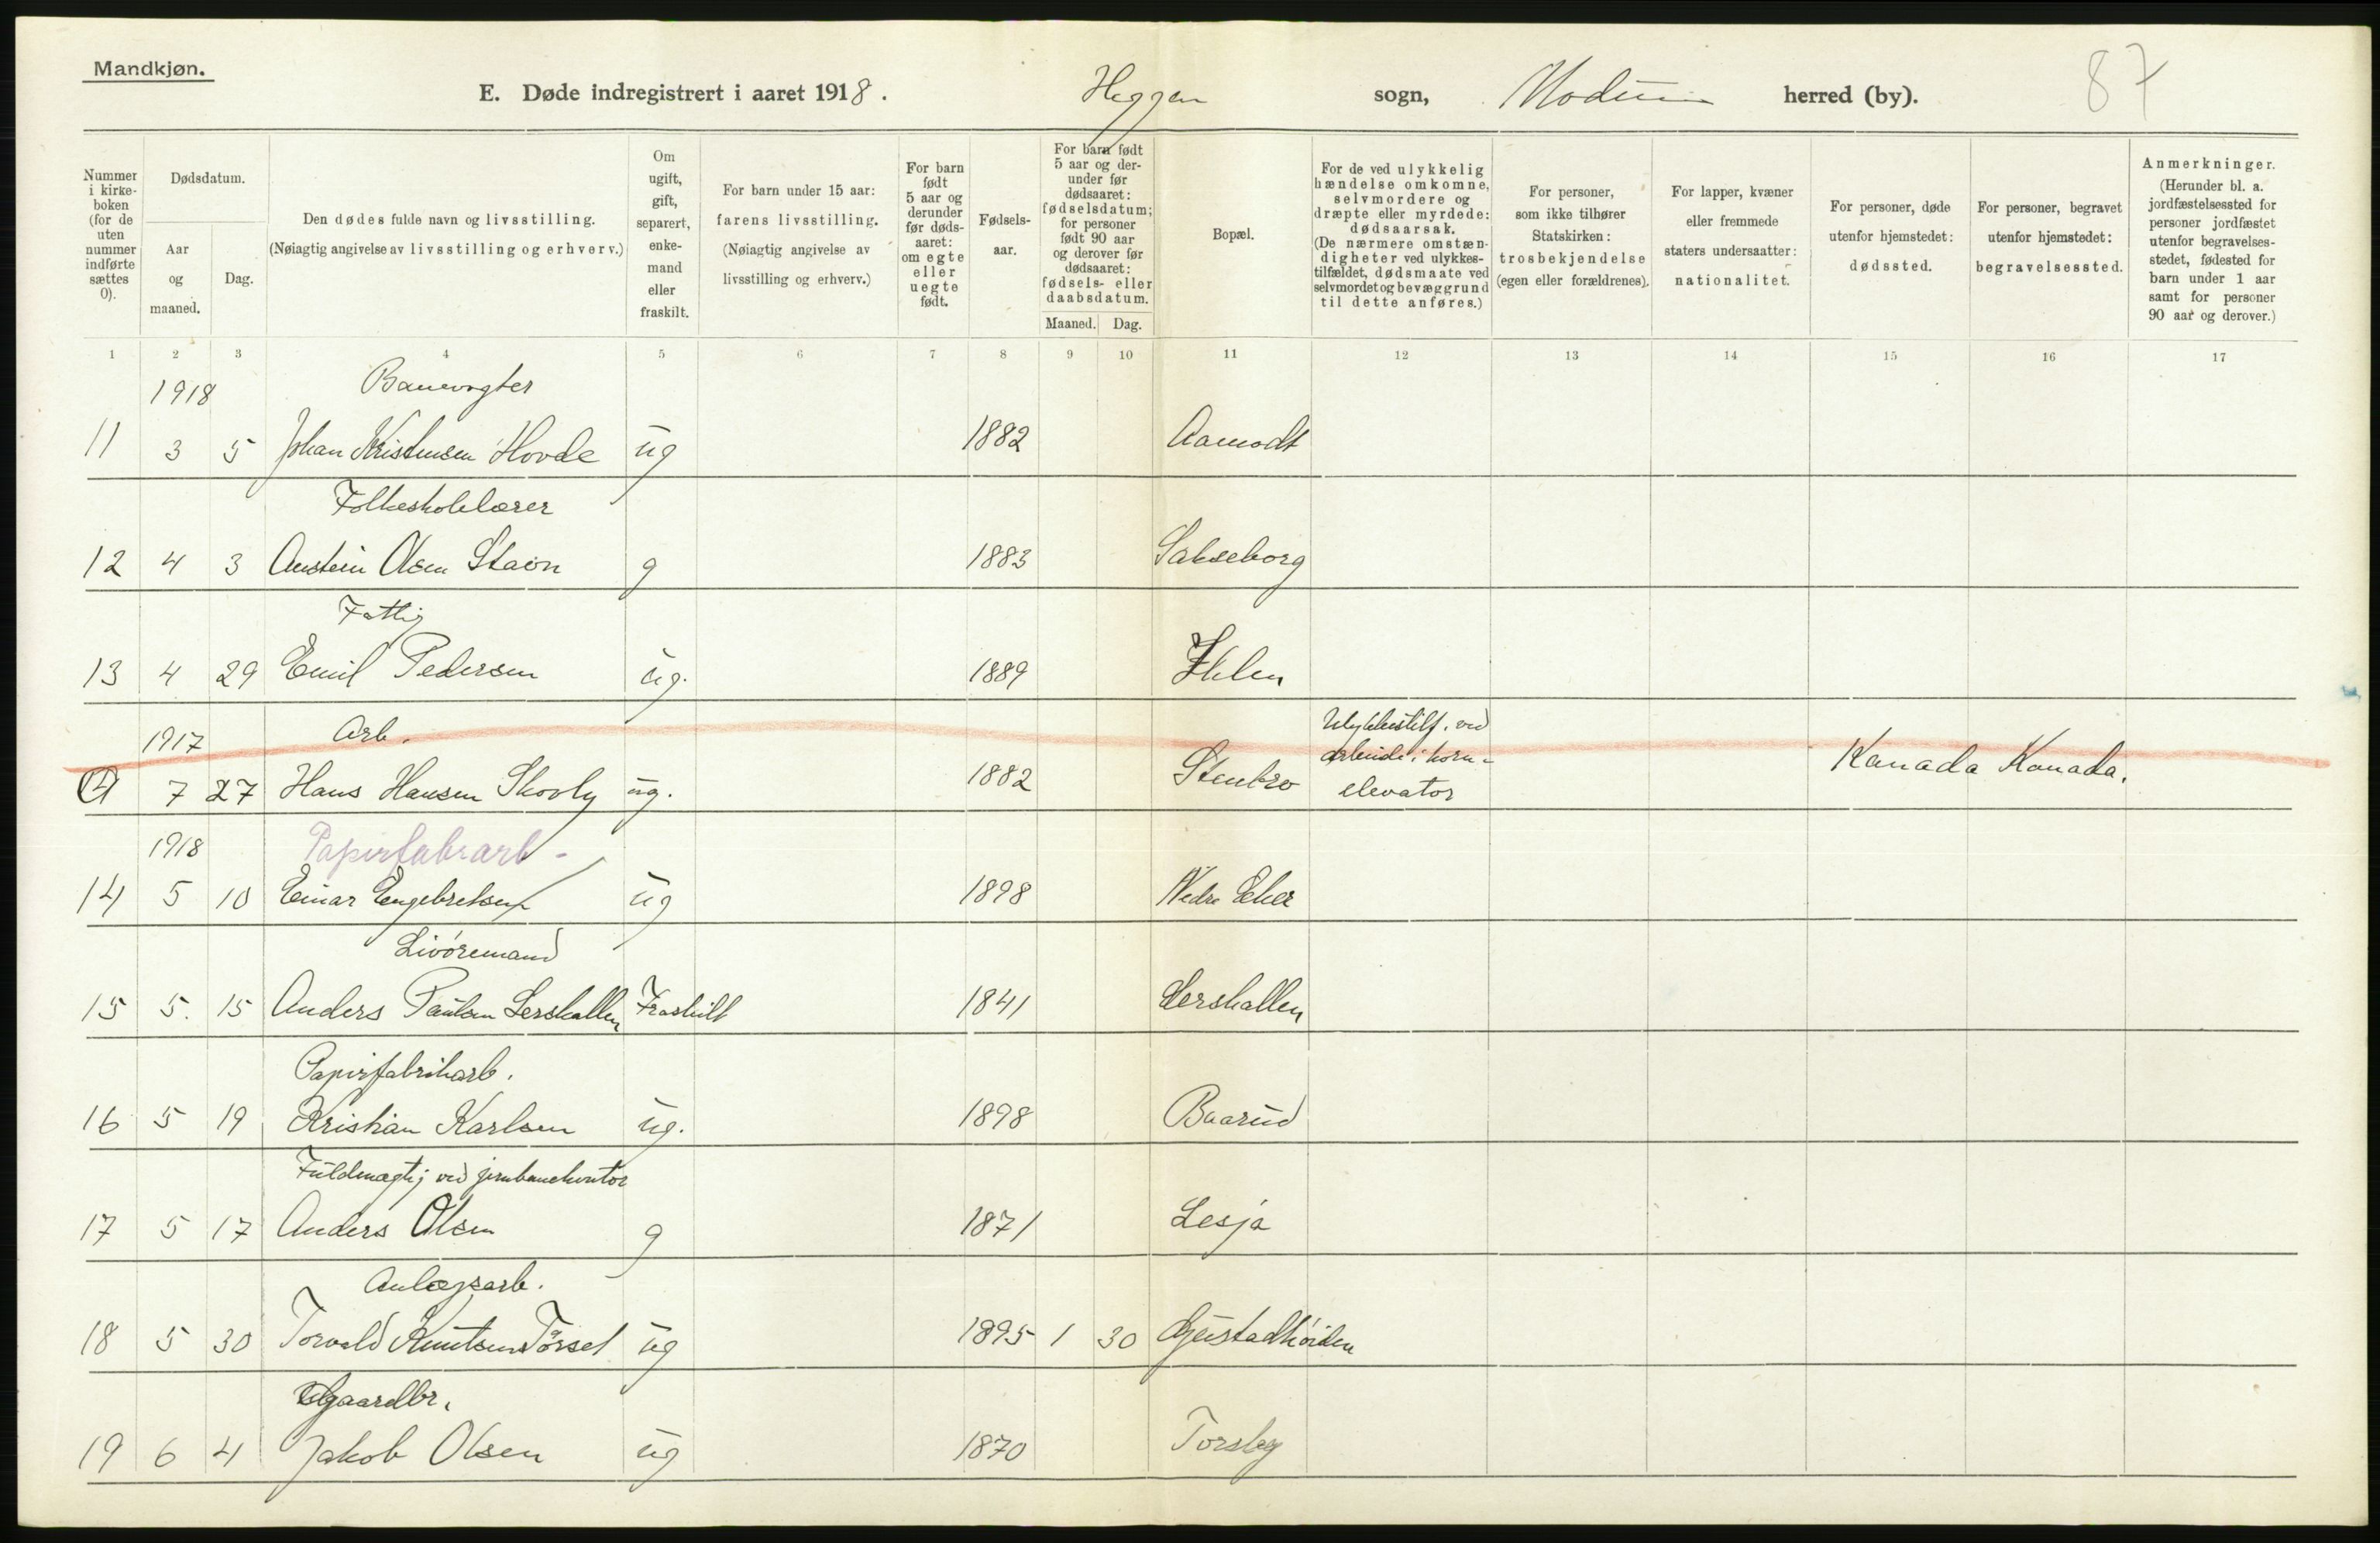 Mandkjøn.
E. Døde indregistrert i aaret 1918. Heggen sogn, Modum herred (by). 87
Nummer i kirke- boken (for de uten nummer indførte sættes 0).
Dødsdatum.
Aar og maaned.
Dag.
Den dødes fulde navn og livsstilling.
(Nøiagtig angivelse av livsstilling og erhverv.)
Om ugift, gift, separert, enke- mand eller fraskilt.
For barn under 15 aar: farens livsstilling.
(Nøiagtig angivelse av livsstilling og erhverv.)
For barn født 5 aar og derunder før døds- aaret: om egte eller uegte født.
Fødsels- aar.
For barn født 5 aar og der- under før dødsaaret: fødselsdatum; for personer født 90 aar og derover før dødsaaret: fødsels- eller daabsdatum.
Maaned. Dag.
Bopæl.
For de ved ulykkelig hændelse omkomne, selvmordere og dræpte eller myrdede: dødsaarsak.
(De nærmere omstæn- digheter ved ulykkes- tilfældet, dødsmaate ved selvmordet og bevæggrund til dette anføres.)
For personer, som ikke tilhører Statskirken: trosbekjendelse (egen eller forældrenes).
For lapper, kvæner eller fremmede staters undersaatter: nationalitet.
For personer, døde utenfor hjemstedet: dødssted.
For personer, begravet utenfor hjemstedet: begravelsessted.
Anmerkninger.
(Herunder bl. a. jordfæstelsessted for personer jordfæstet utenfor begravelses- stedet, fødested for barn under 1 aar samt for personer 90 aar og derover.)
1 2 3 4 5 6 7 8 9 10 11 12 13 14 15 16 17
1918 Banevogter
11 3 5 Johan Kristensen Hovde ug 1882 Aamodt
Folkeskolelærer
12 4 3 Austein Olsen Stavn g 1883 Sakseborg
Fattig
13 4 29 Emil Pedersen ug. 1889 Ihlen
1917 Arb. Ulykkestilf. ved
arbeide i korn-
7 27 Hans Hansen Skovly ug. 1882 Stenbro elevator Kanada Kanada.
1918 Papirfabrarb-
14 5 10 Einar Engebretsen ug 1898 Nedre Eker
Livøremand
15 5. 15 Anders Paulsen Lerskallen Fraskilt 1841 Lerskallen
Papirfabrikarb.
16 5 19 Kristian Karlsen ug. 1898 Baarud
Fuldmægtig ved jernbanekontor
17 5 17 Anders Olsen g 1871 Lesja
Anlægsarb.
18 5 30 Torvald Knutsen Torset ug 1895 1 30
Gaardbr.
19 6 4 Jakob Olsen ug 1870 Torsby